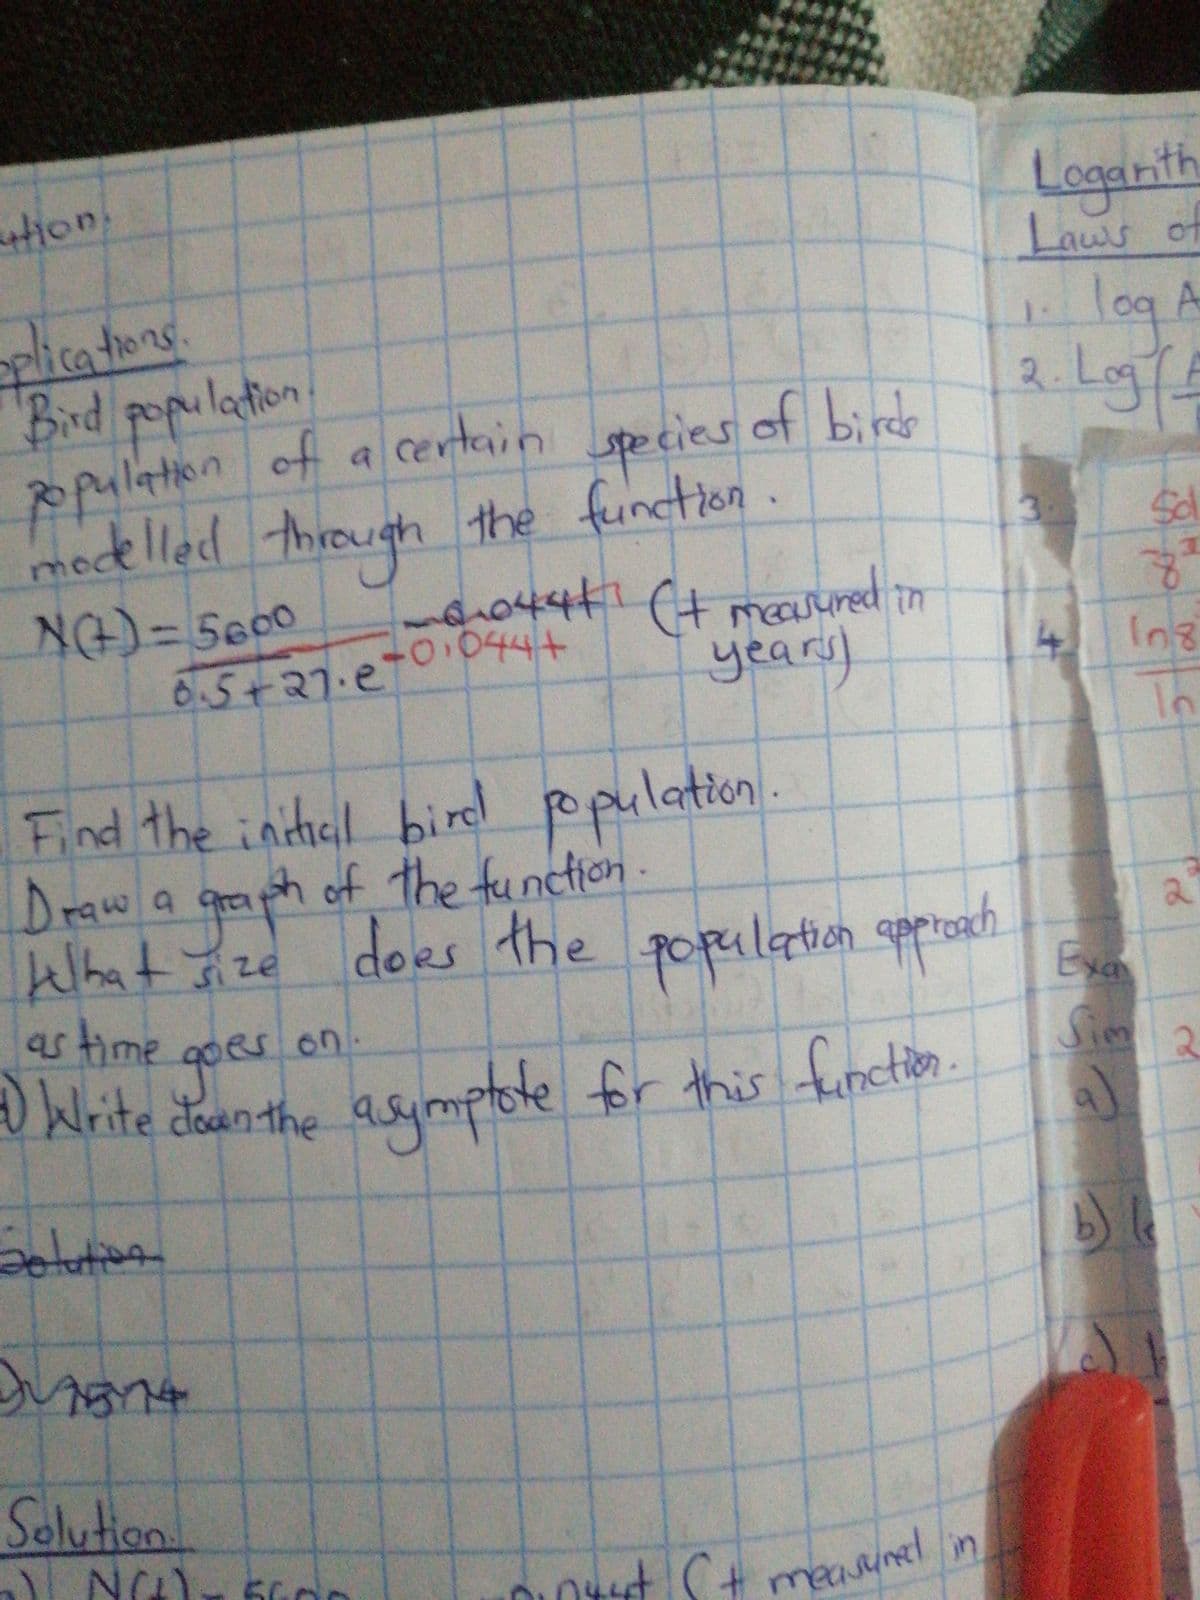 ution.
pplications.
Bird population.
population of a certain species of birds
modelled through the function.
N(t) = 5600 -0.044t (t measured in
0.5 + 27.e -0.044t years)
Find the initial bird population.
Draw a graph of the function.
What size does the population approach
as time goes on.
d) Write down the asymptote for this function.
Solution
Solution.
a) N(t) = 5600 -0.044t (t measured in
Logarith
Laws of
1. log A
2. Log (A
3.
4
Exa
Sim
a)
b) lo
c)
Sol
8
ln 8
ln
2
2